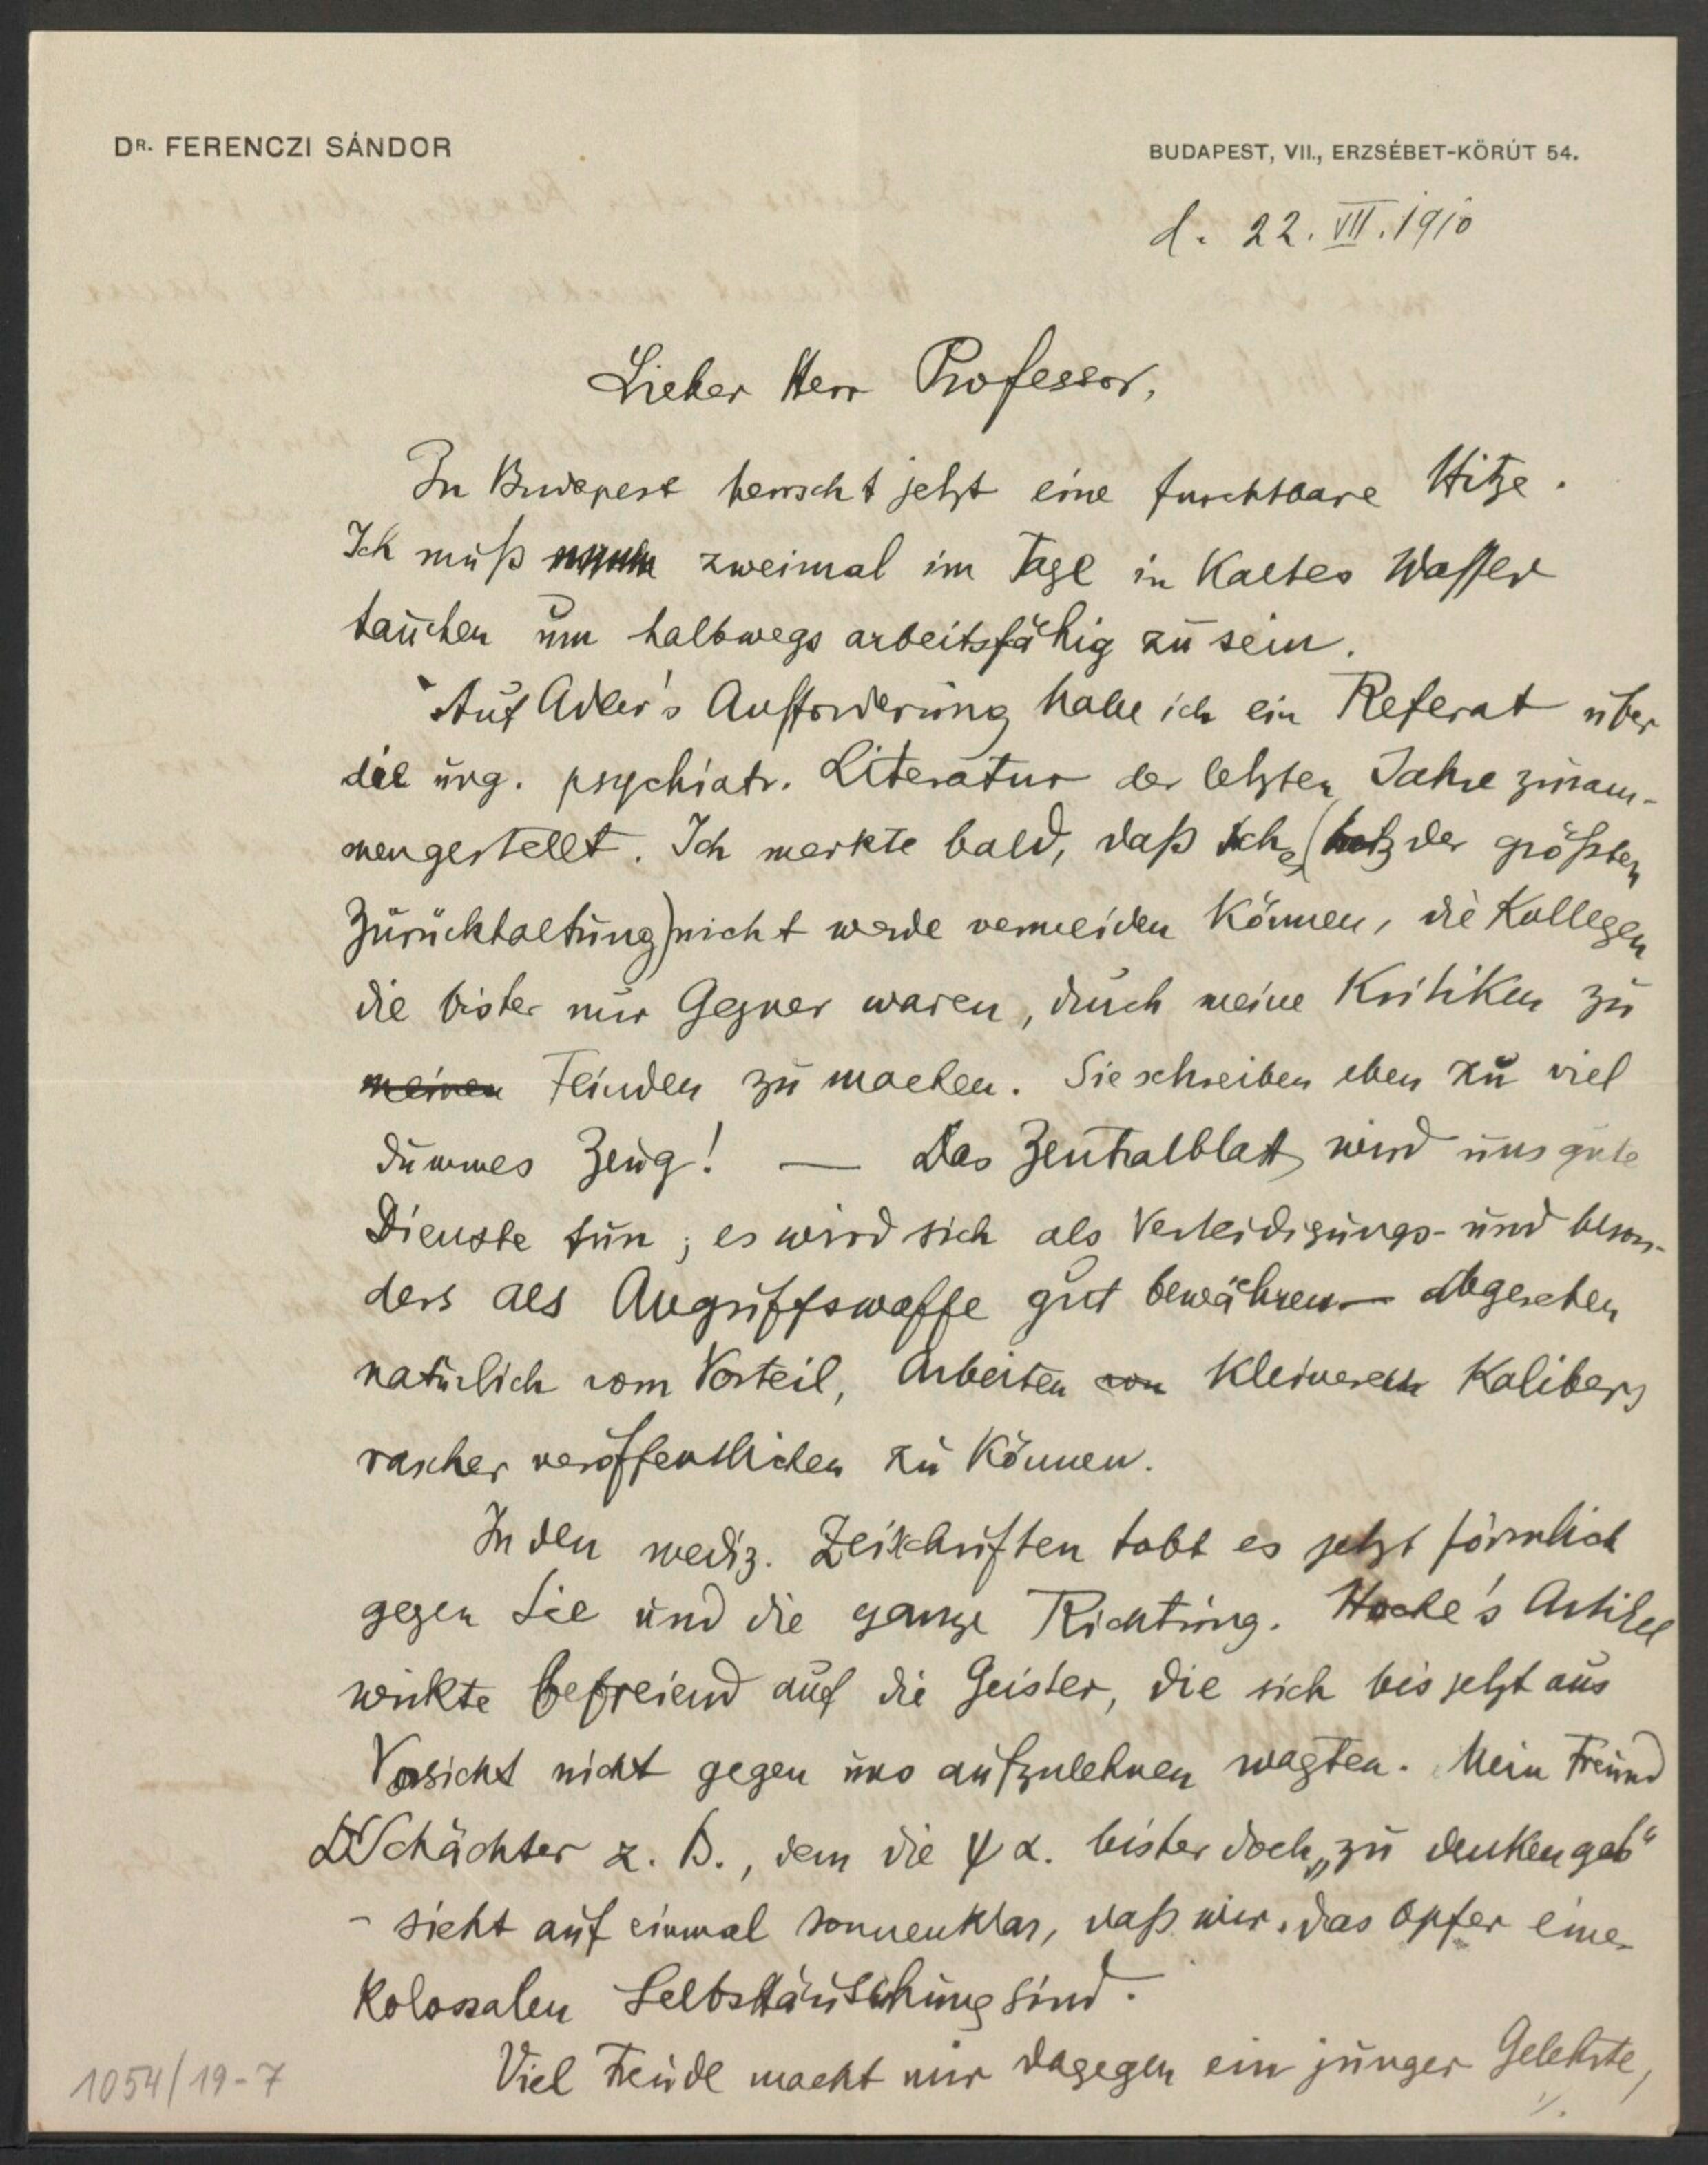 DR. FERENCZI SÁNDOR
BUDAPEST, VII., ERZSÉBET-KÖRÚT 54.
d. 22. VII. 1910
Lieber Herr Professor,
In Budapest herrscht jetzt eine furchtbare Hitze.
Ich muß zweimal im Tage in kaltes Wasser
tauchen um halbwegs arbeitsfähig zu sein.
Auf Adler's Aufforderung habe ich ein Referat über
die ung. psychiatr. Literatur der letzten Jahre zusam-
mengestellt. Ich merkte bald, daß ich (trotz der größten
Zurückhaltung) nicht werde vermeiden können, die Kollegen
die bisher nur Gegner waren, durch meine Kritiken zu
meinen Feinden zu machen. Sie schreiben eben zu viel
dummes Zeug! — Das Zentralblatt wird uns gute
Dienste tun; es wird sich als Verteidigungs- und beson-
ders als Angriffswaffe gut bewähren — abgesehen
natürlich vom Vorteil, Arbeiten von kleineren Kalibers
rascher veröffentlichen zu können.
In den mediz. Zeitschriften tobt es jetzt förmlich
gegen Sie und die ganze Richtung. Hoche's Artikel
wirkte befreiend auf die Geister, die sich bis jetzt aus
Vorsicht nicht gegen uns aufzulehnen wagten. Mein Freund
Dr Schächter z. B., dem die ψα. bisher doch „zu denken gab“
- sieht auf einmal sonnenklar, daß wir das Opfer einer
kolossalen Selbsttäuschung sind.
Viel Freude macht mir dagegen ein junger Gelehrte,
./.
1054/19-7